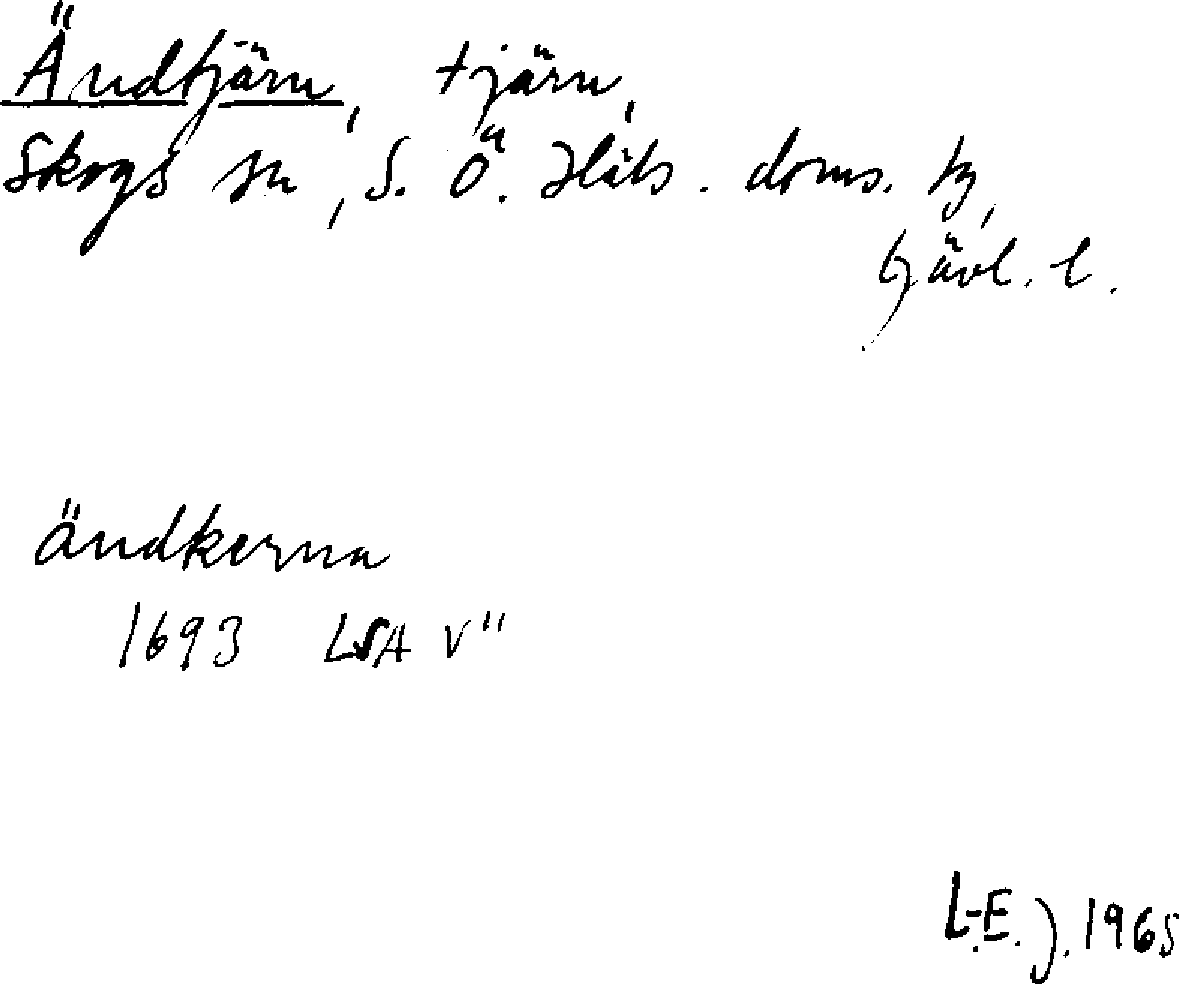 Ändtjärn, tjärn,
Skogs sn, S. Ö. Häls. doms. tg,
Gävl. l.
ändkerna
1693 LSA V"
L.-E. J. 1965